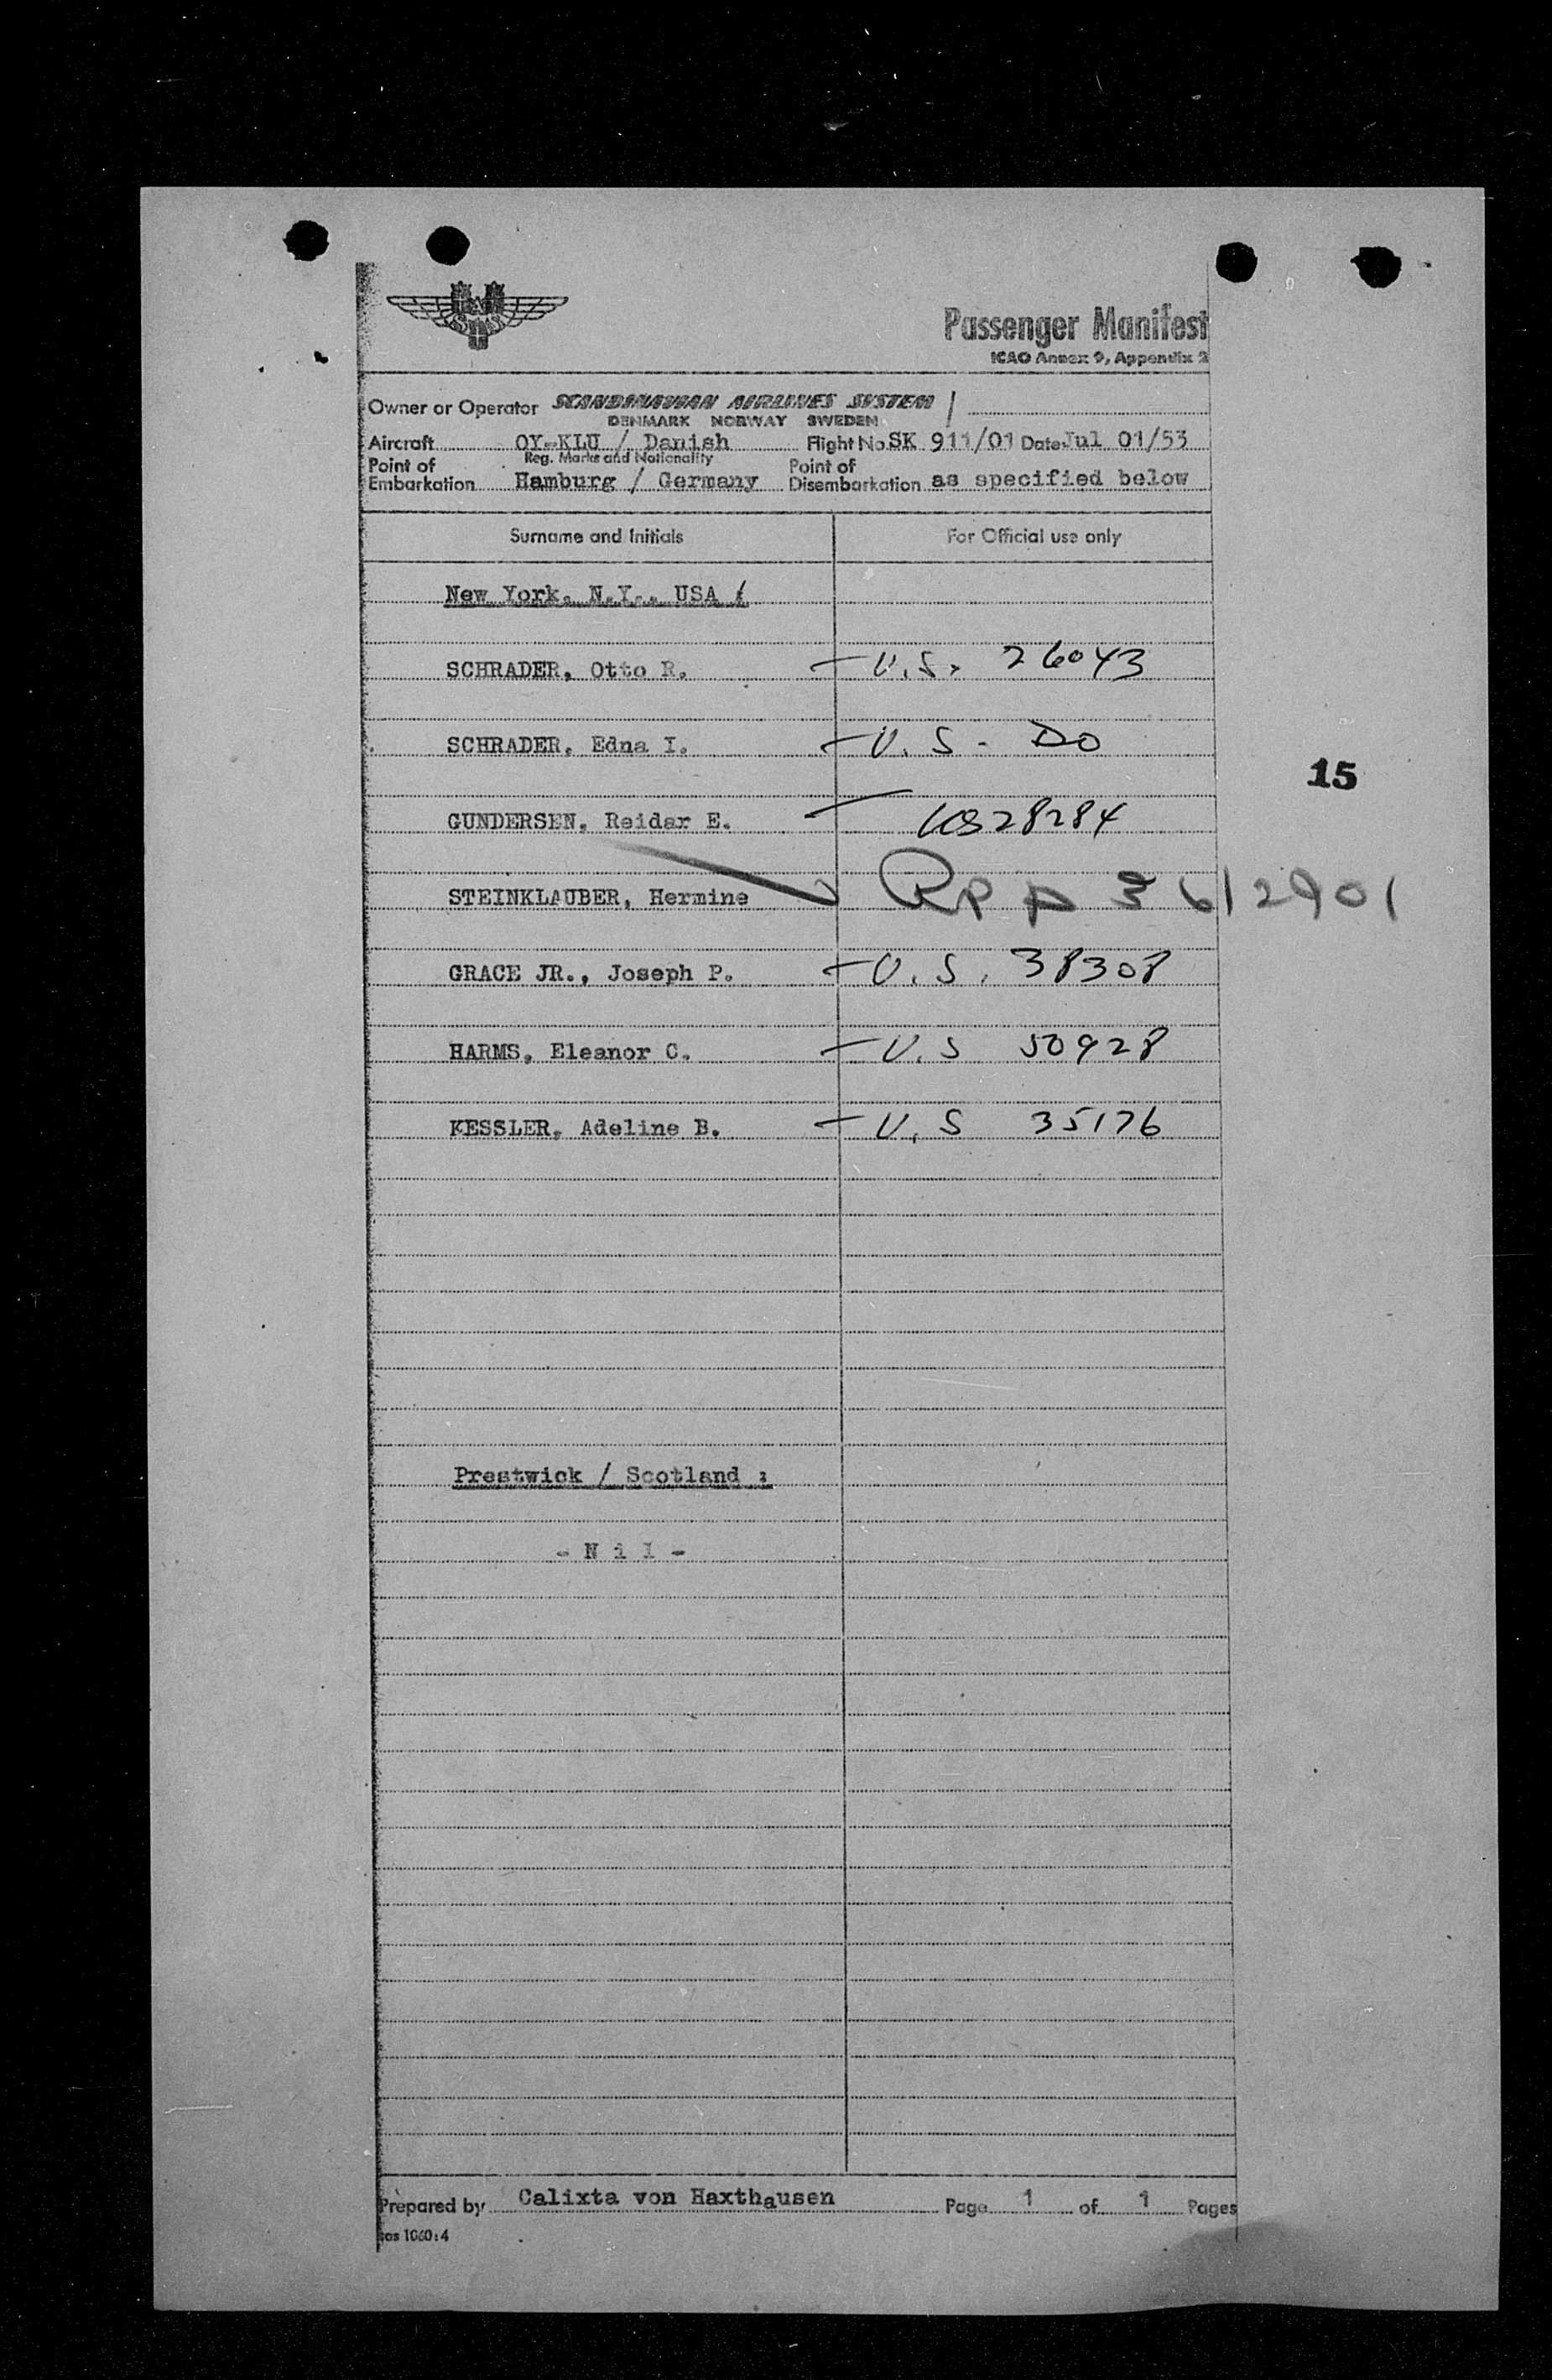 SAS
Passenger Manifest
ICAO Annex 9, Appendix 2
Owner or Operator SCANDINAVIAN AIRLINES SYSTEM /
DENMARK NORWAY SWEDEN
Aircraft OY-KLU / Danish Flight No. SK 911/01 Date Jul 01/53
Reg. Marks and Nationality
Point of Embarkation Hamburg / Germany Point of Disembarkation as specified below
Surname and Initials For Official use only
New York. N.Y.. USA :
SCHRADER, Otto R. - U.S. 26043
SCHRADER, Edna I. - U.S. - Do
15
GUNDERSEN, Reidar E. - US 28284
STEINKLAUBER, Hermine
GRACE JR., Joseph P. - U.S. 38308
HARMS, Eleanor C. - U.S 50928
KESSLER, Adeline B. - U.S 35176
Prestwick / Scotland :
- N i l -
Prepared by Calixta von Haxthausen Page 1 of 1 Pages
sas 1060:4